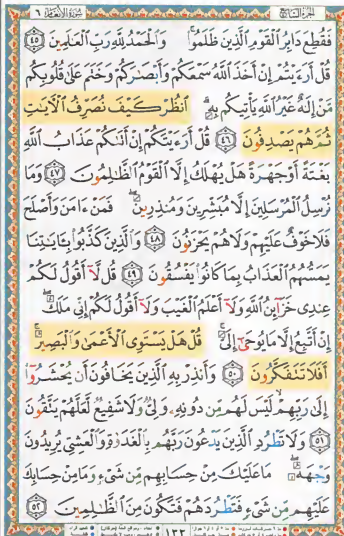 الجزء السابع سورة الأنعام ٦
فَقُطِعَ دَابِرُ الْقَوْمِ الَّذِينَ ظَلَمُوا۟ وَالْحَمْدُ لِلَّهِ رَبِّ الْعَٰلَمِينَ ۝٤٥
قُلْ أَرَءَيْتُمْ إِنْ أَخَذَ اللَّهُ سَمْعَكُمْ وَأَبْصَٰرَكُمْ وَخَتَمَ عَلَىٰ قُلُوبِكُم
مَّنْ إِلَٰهٌ غَيْرُ اللَّهِ يَأْتِيكُم بِهِ ۗ انظُرْ كَيْفَ نُصَرِّفُ الْءَايَٰتِ
ثُمَّ هُمْ يَصْدِفُونَ ۝٤٦ قُلْ أَرَءَيْتَكُمْ إِنْ أَتَىٰكُمْ عَذَابُ اللَّهِ
بَغْتَةً أَوْ جَهْرَةً هَلْ يُهْلَكُ إِلَّا الْقَوْمُ الظَّٰلِمُونَ ۝٤٧ وَمَا
نُرْسِلُ الْمُرْسَلِينَ إِلَّا مُبَشِّرِينَ وَمُنذِرِينَ ۖ فَمَنْ ءَامَنَ وَأَصْلَحَ
فَلَا خَوْفٌ عَلَيْهِمْ وَلَا هُمْ يَحْزَنُونَ ۝٤٨ وَالَّذِينَ كَذَّبُوا۟ بِـَٔايَٰتِنَا
يَمَسُّهُمُ الْعَذَابُ بِمَا كَانُوا۟ يَفْسُقُونَ ۝٤٩ قُل لَّآ أَقُولُ لَكُمْ
عِندِى خَزَآئِنُ اللَّهِ وَلَآ أَعْلَمُ الْغَيْبَ وَلَآ أَقُولُ لَكُمْ إِنِّى مَلَكٌ ۖ
إِنْ أَتَّبِعُ إِلَّا مَا يُوحَىٰٓ إِلَىَّ ۚ قُلْ هَلْ يَسْتَوِى الْأَعْمَىٰ وَالْبَصِيرُ ۚ
أَفَلَا تَتَفَكَّرُونَ ۝٥٠ وَأَنذِرْ بِهِ الَّذِينَ يَخَافُونَ أَن يُحْشَرُوٓا۟
إِلَىٰ رَبِّهِمْ ۙ لَيْسَ لَهُم مِّن دُونِهِۦ وَلِىٌّ وَلَا شَفِيعٌ لَّعَلَّهُمْ يَتَّقُونَ
۝٥١ وَلَا تَطْرُدِ الَّذِينَ يَدْعُونَ رَبَّهُم بِالْغَدَوٰةِ وَالْعَشِىِّ يُرِيدُونَ
وَجْهَهُۥ ۖ مَا عَلَيْكَ مِنْ حِسَابِهِم مِّن شَىْءٍ وَمَا مِنْ حِسَابِكَ
عَلَيْهِم مِّن شَىْءٍ فَتَطْرُدَهُمْ فَتَكُونَ مِنَ الظَّٰلِمِينَ ۝٥٢
١٣٣